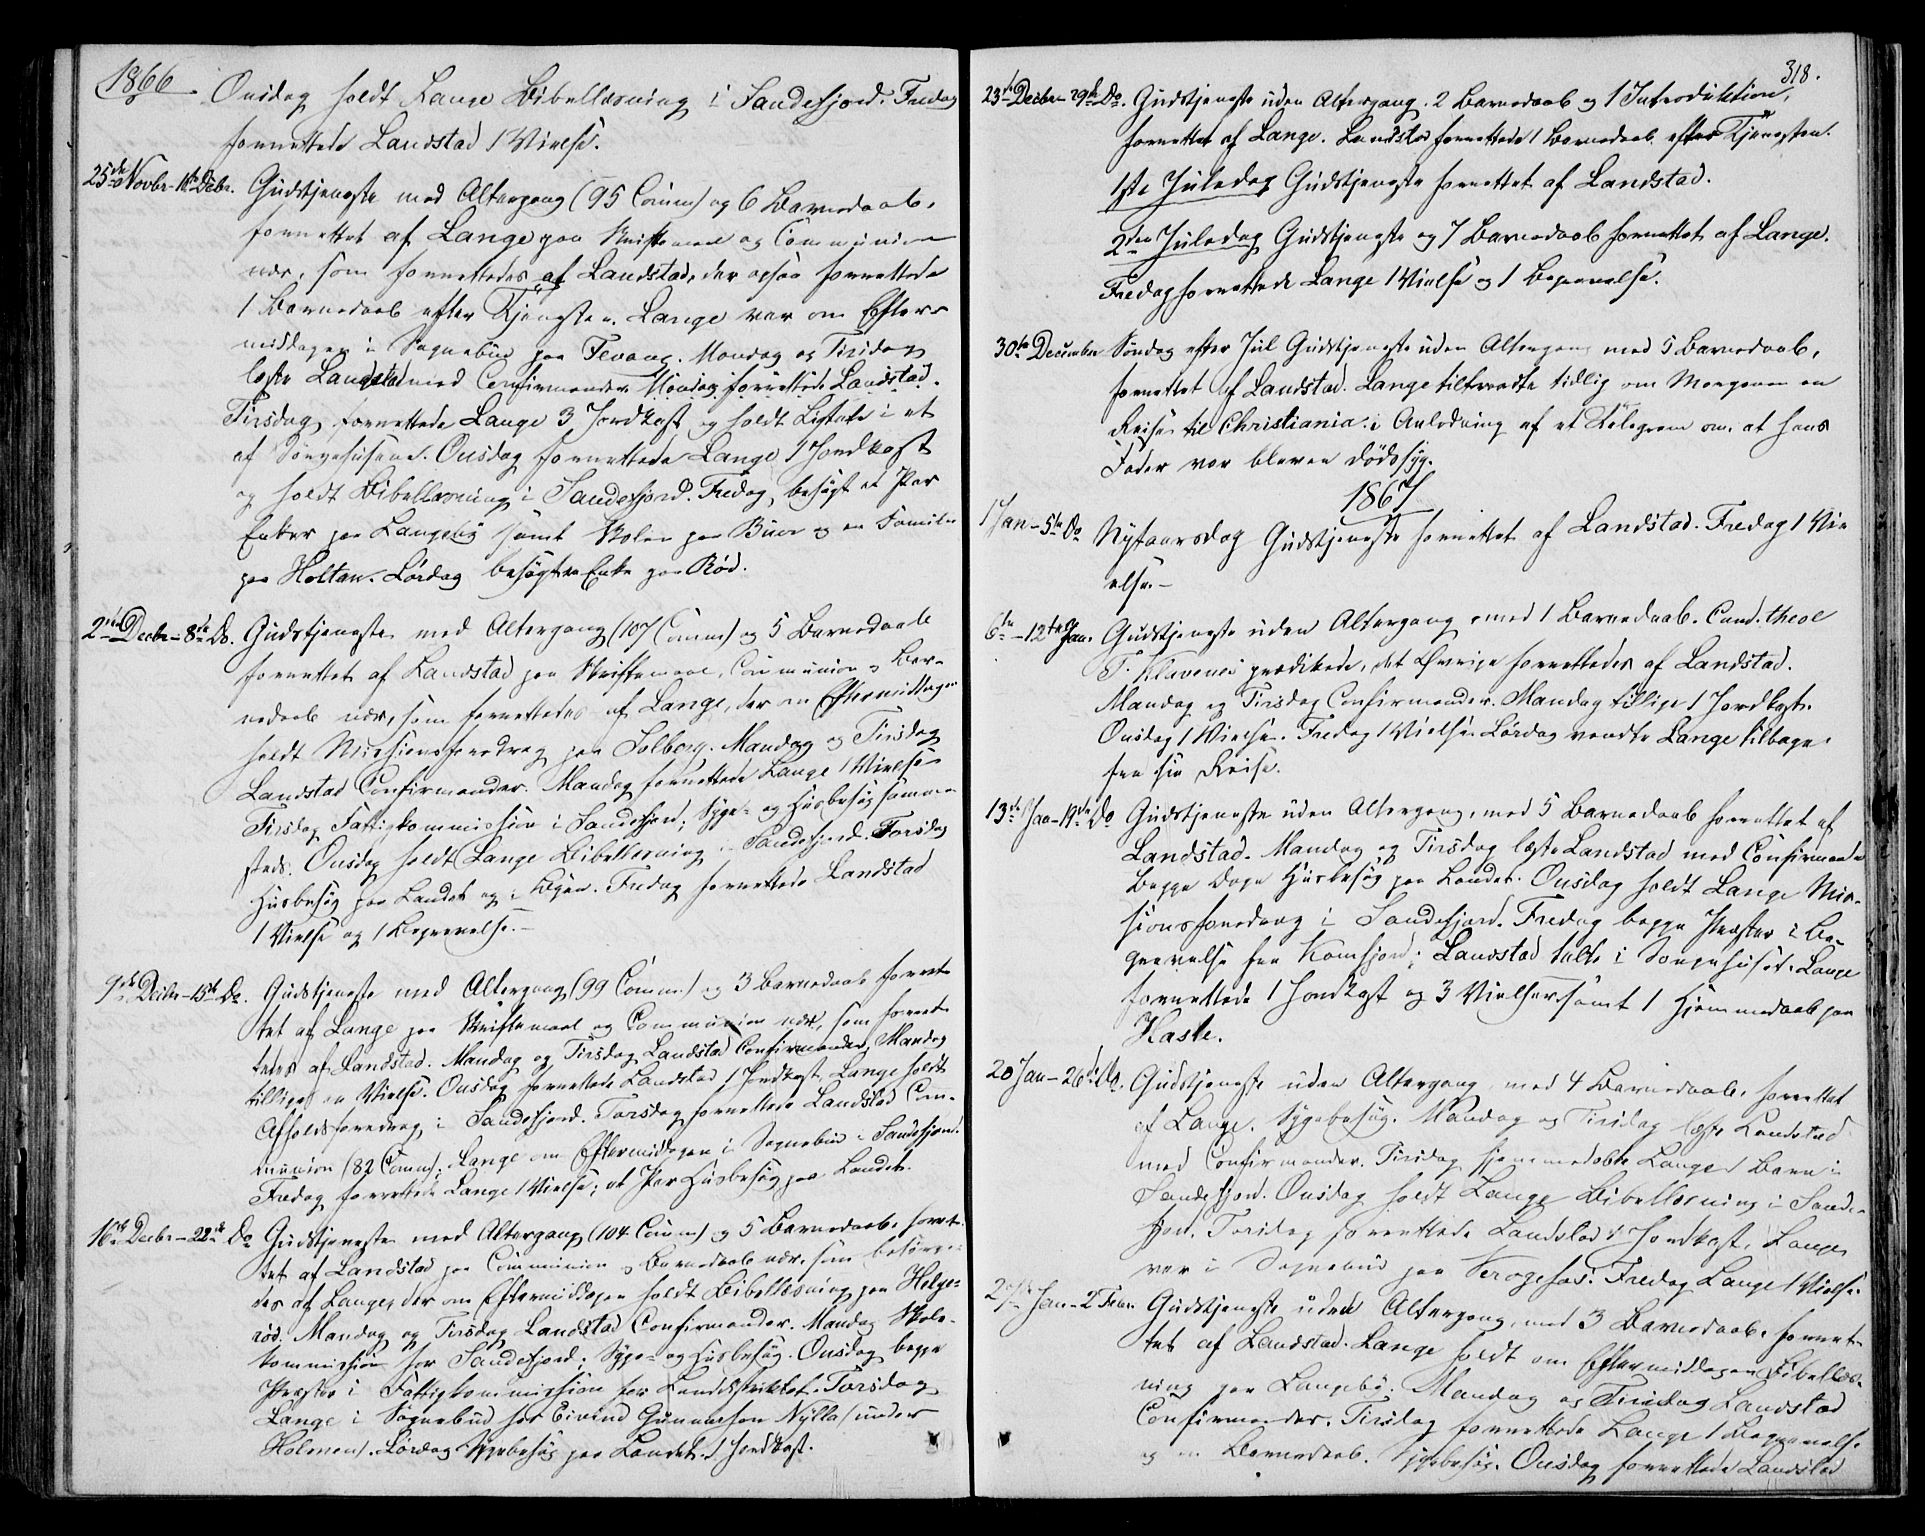 1866
Onsdag holdt Lange Bibellæsning i Sandefjord. Fredag
forrettede Landstad 1 Vielse.
25de Novbr-1ste Debr. Gudstjeneste med Altergang (95 Comm) og 6 Barnedaab,
forrettet af Lange paa Skriftemaal og Communion
nær, som forrettedes af Landstad, der ogsaa forrettede
1 Barnedaab efter Tjenesten. Lange var om Efter-
middagen i Sognebud paa Fevang. Mandag og Tirsdag
læste Landstad med Confirmander. Mandag forrettede Landstad.
Tirsdag forrettede Lange 3 Jordkast og holdt Ligtale i et
af Sørgehusene. Onsdag forrettede Lange 1 Jordkast
og holdt Bibellæsning i Sandefjord. Fredag besøgt et Par
Enker paa Langeby samt Skolen paa Buer og en Familie
paa Holtan. Lørdag besøgt en Enke paa Rød.
2den Decbr-8de Do. Gudstjeneste med Altergang (107 Comm) og 5 Barnedaab
forrettet af Landstad paa Skriftemaal, Communion og Bar-
nedaab nær, som forrettedes af Lange, der om Eftermiddagen
holdt Missionsforedrag paa Solberg. Mandag og Tirsdag
Landstad Confirmander. Mandag forrettede Lange 1 Vielse
Tirsdag Fattigkommission i Sandefjord; Syge- og Husbesøg samme-
steds. Onsdag holdt Lange Bibellæsning i Sandefjord. Torsdag
Husbesøg paa Landet og i Byen. Fredag forrettede Landstad
1 Vielse og 1 Begravelse.-
9de Decbr-15de Do. Gudstjeneste med Altergang (99 Comm) og 3 Barnedaab forret-
tet af Lange paa Skriftemaal og Communion nær, som forret-
tedes af Landstad. Mandag og Tirsdag Landstad Confirmander, Mandag
tillige en Vielse. Onsdag forrettede Landstad 1 Jordkast, Lange holdt
Afholdsforedrag i Sandefjord. Torsdag forrettede Landstad Com-
munion (82 Comm); Lange om Eftermiddagen i Sognebud i Sandefjord.
Fredag forrettede Lange 1 Vielse; et Par Husbesøg paa Landet.
16de Decbr-22de Do Gudstjeneste med Altergang (104 Comm) og 5 Barnedaab, forret-
tet af Landstad paa Communion og Barnedaab nær, som besørge-
des af Lange, der om Eftermiddagen holdt Bibellæsning paa Helge-
rød. Mandag og Tirsdag Landstad Confirmander. Mandag Skole-
kommission for Sandefjord; Syge- og Husbesøg. Onsdag begge
Præster i Fattigkommission for Landdistriktet. Torsdag
Lange i Sognebud hos Eivind Gunnersen Nylla (under
Holmen). Lørdag Sygebesøg paa Landet. 1 Jordkast.
318.
23de Decbr-29de Do. Gudstjeneste uden Altergang. 2 Barnedaab og 1 Introduktion,
forrettet af Lange. Landstad forrettede 1 Barnedaab efter Tjenesten.
1ste Juledag Gudstjeneste forrettet af Landstad.
2den Juledag Gudstjeneste og 7 Barnedaab forrettet af Lange.
Fredag forrettede Lange 1 Vielse og 1 Begravelse.
30te December Søndag efter Jul Gudstjeneste uden Altergang med 5 Barnedaab,
forrettet af Landstad. Lange tiltraadte tidlig om Morgenen en
Reise til Christiania i Anledning af et Telegram om, at hans
Fader var bleven dødssyg.
1867
1 Jan-5te Do Nytaarsdag Gudstjeneste forrettet af Landstad. Fredag 1 Vi-
else.-
6te-12te Jan. Gudstjeneste uden Altergang med 1 Barnedaab. Cand. theol
T. Klavenes prædikede, det Øvrige forrettedes af Landstad.
Mandag og Tirsdag Confirmander. Mandag tillige 1 Jordkast.
Onsdag 1 Vielse. Fredag 1 Vielse. Lørdag vendte Lange tilbage
fra sin Reise.
13de Jan-19de Do Gudstjeneste uden Altergang, med 5 Barnedaab forrettet af
Landstad. Mandag og Tirsdag læste Landstad med Confirmander
begge Dage Husbesøg paa Landet. Onsdag holdt Lange Mis-
sionsforedrag i Sandefjord. Fredag begge Præster i Be-
gravelse fra Kamfjord; Landstad talte i Sørgehuset. Lange
forrettede 1 Jordkast og 3 Vielser samt 1 Hjemmedaab paa
Hasle.
20 Jan-26de Do. Gudstjeneste uden Altergang med 4 Barnedaab, forrettet
af Lange. Sygebesøg. Mandag og Tirsdag læste Landstad
med Confirmander. Tirsdag hjemmedøbte Lange 1 Barn i
Sandefjord. Onsdag holdt Lange Bibellæsning i Sande-
fjord. Torsdag forrettede Landstad 1 Jordkast, Lange
var i Sognebud paa . Fredag Lange 1 Vielse.
27de Jan-2 Febr. Gudstjeneste uden Altergang, med 3 Barnedaab, forret-
tet af Landstad. Lange holdt om Eftermiddagen Bibellæs-
ning paa Langeby. Mandag og Tirsdag Landstad
Confirmander. Tirsdag forrettede Lange 1 Begravelse
og en Barnedaab. Sygebesøg. Onsdag forrettede Landstad